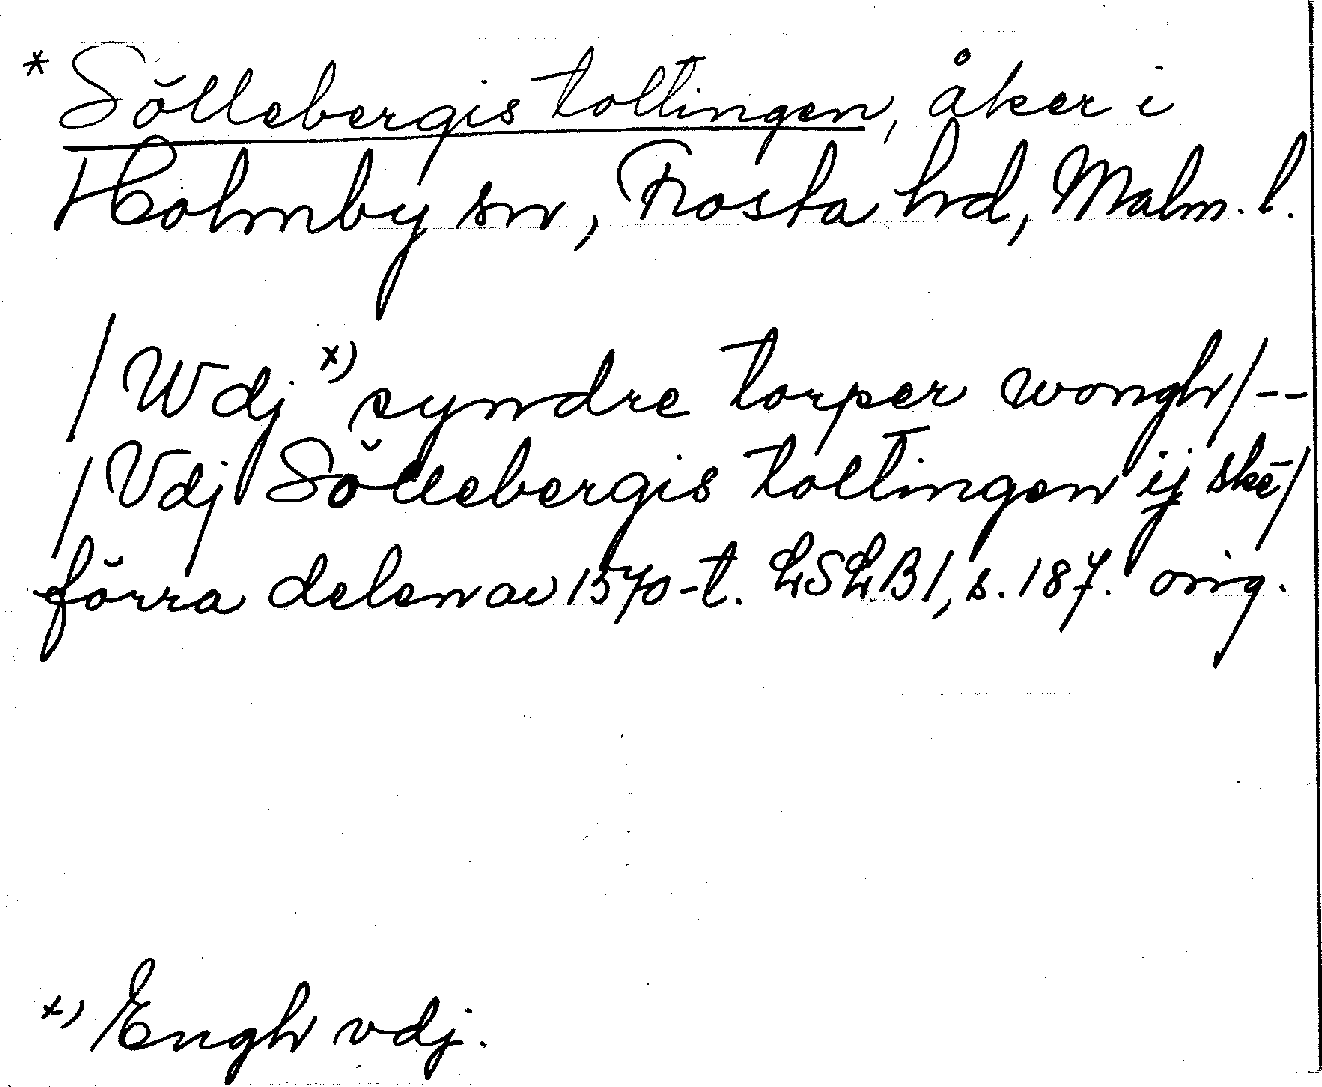 * Söllebergis toltingen, åker i
Holmby sn, Frosta hd, Malm. l.
/Wdj x) syndre torper wongh/--
/Vdj Söllebergis toltingen ij skē/
förra delen av 1570-t. LSLB 1, s. 187. orig.
x) Engh vdj.